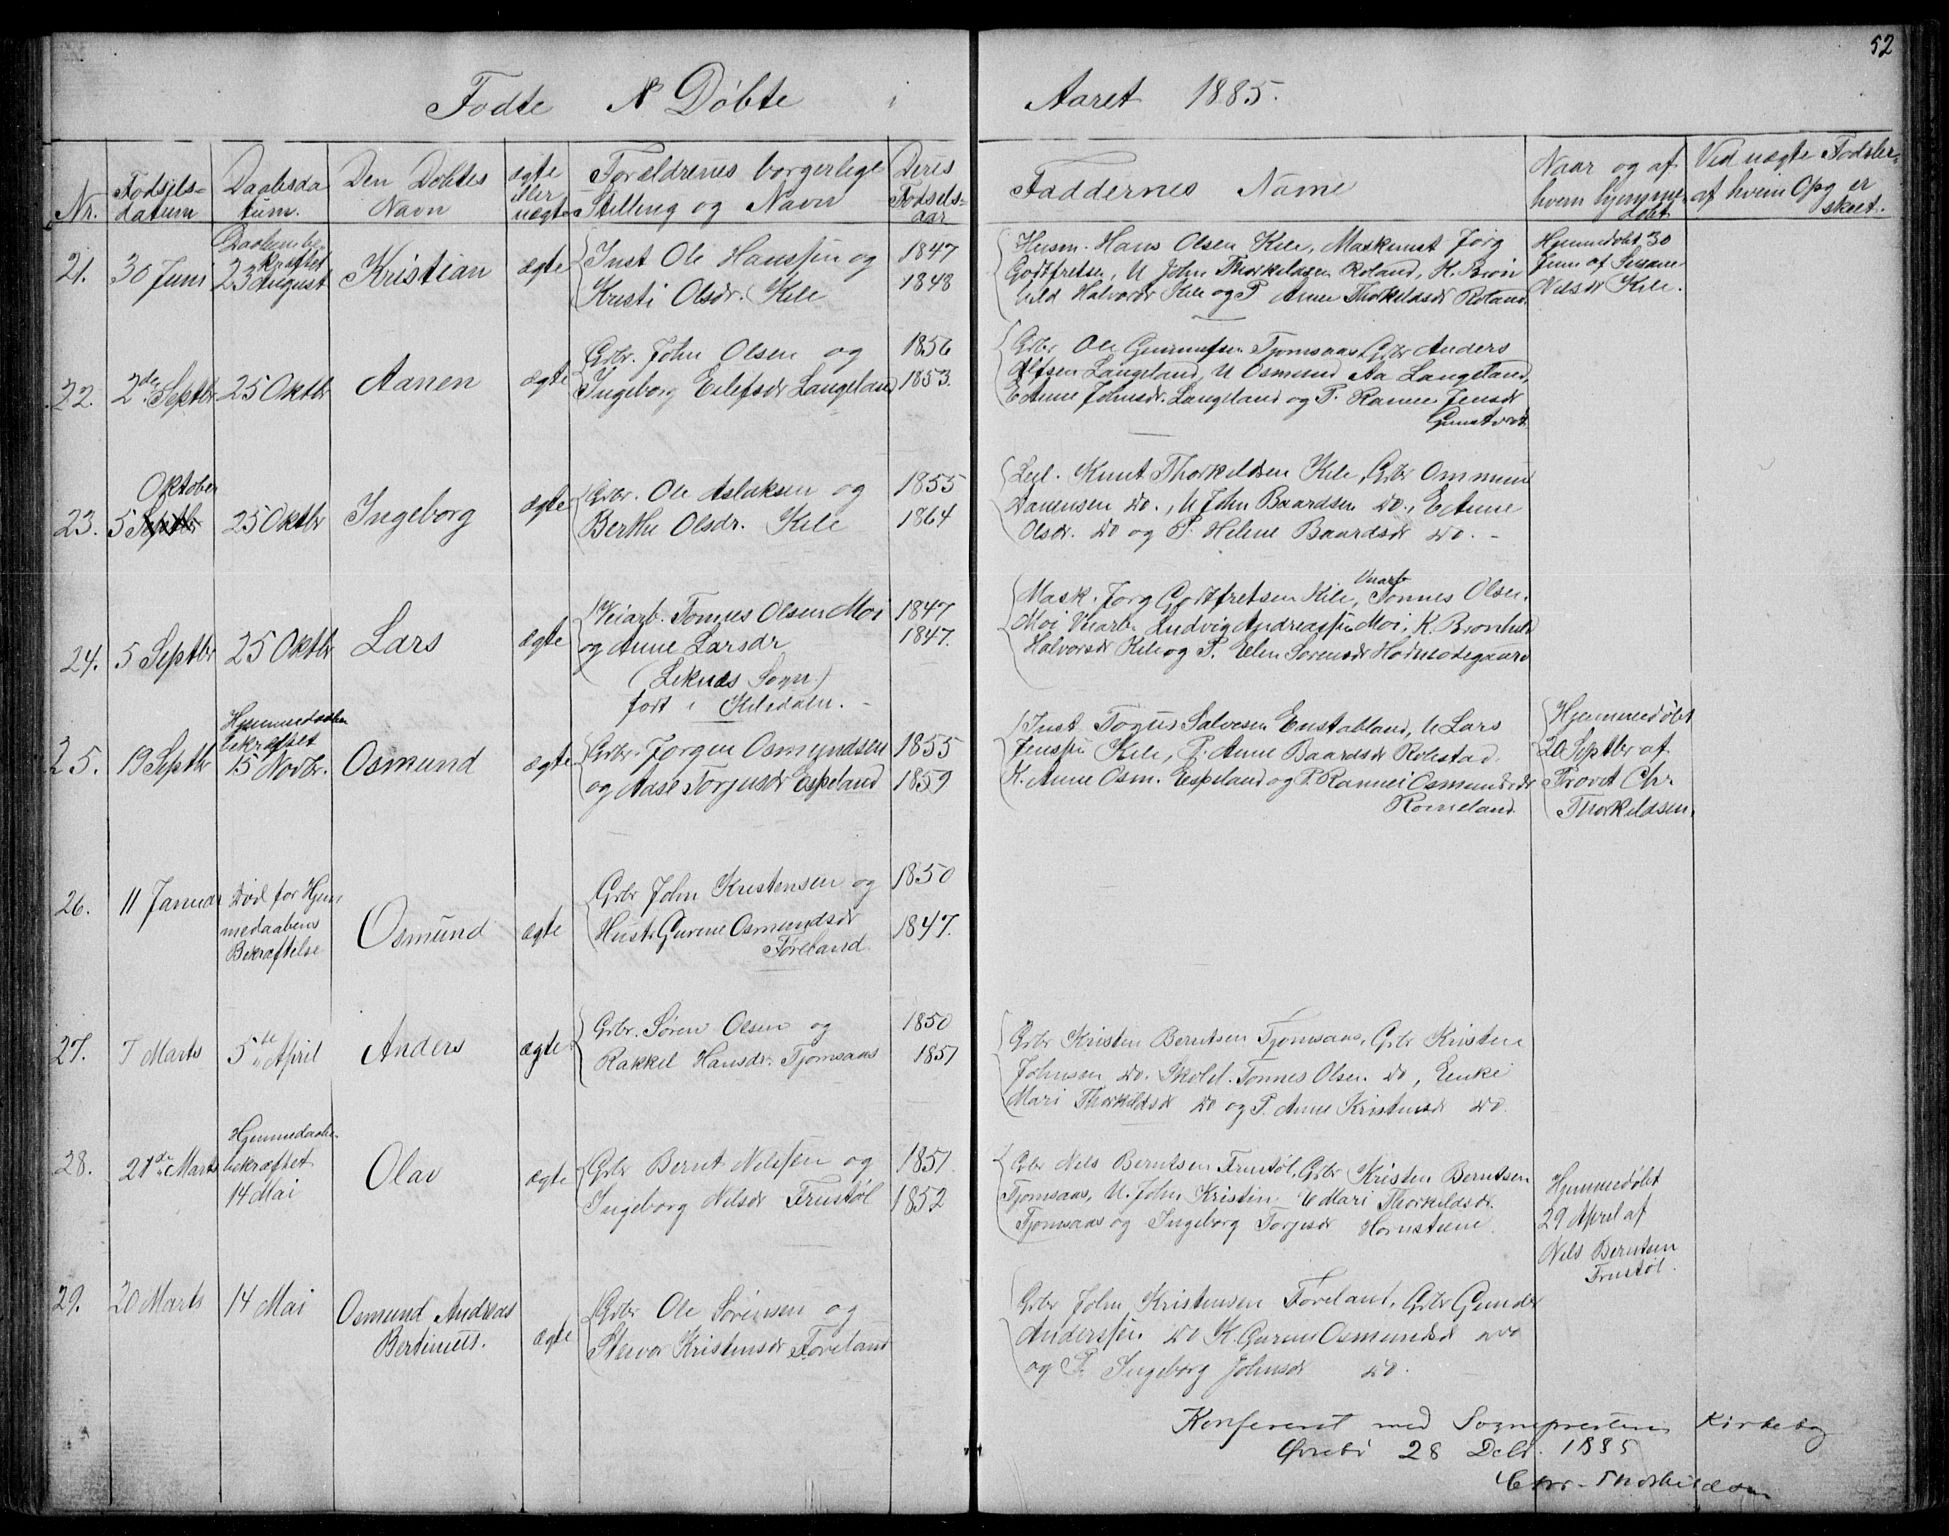 52
Fødte & Døbte i Aaret 1885.
Nr. Fødsels-
datum
Daabsda
tum.
Den Døbtes
Navn
ægte
eller
uægte
Forældrenes borgerlige
Stilling og Navn
Deres
Fødsels-
aar
Faddernes Navne
Naar og af
hvem hjemme-
døbt
Ved uægte Fødsler
af hvem Opg er
skeet.
21. 30 Juni
Daaben be
kræftet
23 August
Kristian
ægte
Inst Ole Hanssen og
Kristi Olsdr. Kile
1847
1848
Husm. Hans Olsen Kile, Maskinist Jørg
Godtfretsen, U John Thorkildsen Roland, K. Brön
hild Halvorsdr Kile og P. Anne Thorkildsdr Roland
Hjemmedøbt 30
Juni af Susane
Nilsdr Kile.
22. 2den Septbr 25 Oktbr Aanen ægte
Grbr. John Olsen og
Ingeborg Eilefsdr Langeland
1856
1853.
Grbr Ole Gunnufsen Tjomsaas, Grbr Anders
Alfsen Langeland, U Osmund Aa Langeland,
E Anne Johnsdr. Langeland og P. Rannei Jensdr
23.
Oktober
5 Septbr
25 Oktbr Ingeborg ægte
Grbr. Ole Aslaksen og
Berthe Olsdr. Kile
1855
1864
Leil. Knut Thorkildsen Kile, Grbr Ommund
Danensen do., U John Baardsen do., E Anne
Olsdr. do og P. Helene Baardsdr do. -
24. 5 Septbr 25 Oktbr Lars ægte
Veiarb. Tønnes Olsen Moi
og Anne Larsdr
(Leknæs Sogn.)
født i Kiledalen. -
1847
1847.
Mask. Jørg Godtfretsen Kile, Tønnes Olsen
Moi Veiarb Ludvig Andreassen Moi, K. Brønhild
Halvorsdr Kile og P. Elen Sørensdr
25. 19 Septbr
Hjemmedaaben
bekræftet
15 Novbr.
Osmund ægte
Grbr. Jørgen Osmundsen
og Aase Torjusdr Espeland
1855
1859
Inst Torjus Salvesen Eustabland, U Lars
Jenssen Kile, P. Anne Baardsdr Rolestad.
K. Anne Osm. Espeland og P. Rannei Osmundsdr
Romeland.
Hjemmedøbt
20 Septbr af
Provst Chr.
Thorkildsen.
26. 11 Januar
Død før Hjem
medaabens
Bekræftelse
Osmund ægte
Grbr John Kristensen og
Hust. Gurine Osmundsdr
Føreland.
1850
1847.
27. 7 Marts 5te April Anders ægte
Grbr. Søren Olsen og
Rakkel Hansdr. Tjomsaas
1850
1851
Grbr Kristen Berntsen Tjomsaas, Grbr Kristen
Johnsen do. Skolel. Tønnes Olsen do, Enke
Mari Thorkildsdr do og P. Anne Kristensdr do.
28. 21de Marts
Hjemmedaabe
bekræftet
14 Mai
Olav ægte
Grbr Bernt Nilssen og
Ingeborg Nilsdr Frustøl
1851
1852
Grbr Nils Berntsen Frustøl, Grbr Kristen Berntsen
Tjomsaas, U. John Kristin. E Mari Thorkildsdr.
Tjomsaas og Ingeborg Torjusdr
Hjemmedøbt
29 April af
Nils Berntsen
Frustøl.
29. 20 Marts 14 Mai
Osmund Andreas
Bertinius.
ægte
Grbr Ole Sørensen og
Stervor Kristensdr Føreland
Grbr John Kristensen Føreland, Grbr Gunder
Anderssen do K. Gurine Osmundsdr do
og P. Ingeborg Johnsdr do.
Konfereret med Sogneprestens Kirkebog
Øvrebø 28 Decbr. 1885
Chr. Thorkildsen